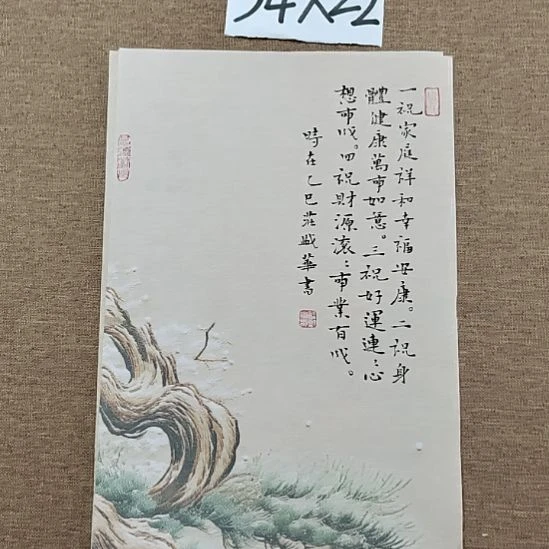 34X22
一祝家庭祥和幸福安康。二祝身
體健康萬事如意。三祝好運連:心
想事成。四祝財源滾:事業百成。
時在乙巳莊盛華書